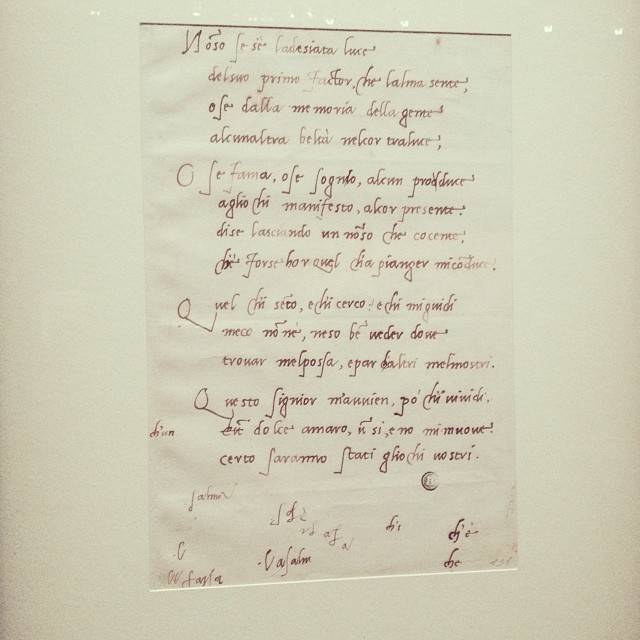 Nõso se s'è ladesiata luce
delsuo primo factor, che lalma sente,
ose dalla memoria della gente
alcunaltra beltà nelcor traluce;
O se fama, ose sognio, alcun prodduce
agliochi manifesto, alcor presente.
dise lasciando un nõso che cocente,
ch'è forse hor quel ch'a pianger micõduce.
Quel chi sẽto, e chi cerco: e chi miguidi
meco nõn è, neso bẽ veder dove
trovar melpossa, e par ch'altri melmostri.
Questo signior m'avvien, po' chi vi vidi,
ch'un
dolce amaro, ũ si, e no mi muove:
certo saranno stati gliochi vostri.
salmi
chi
ch'è
che